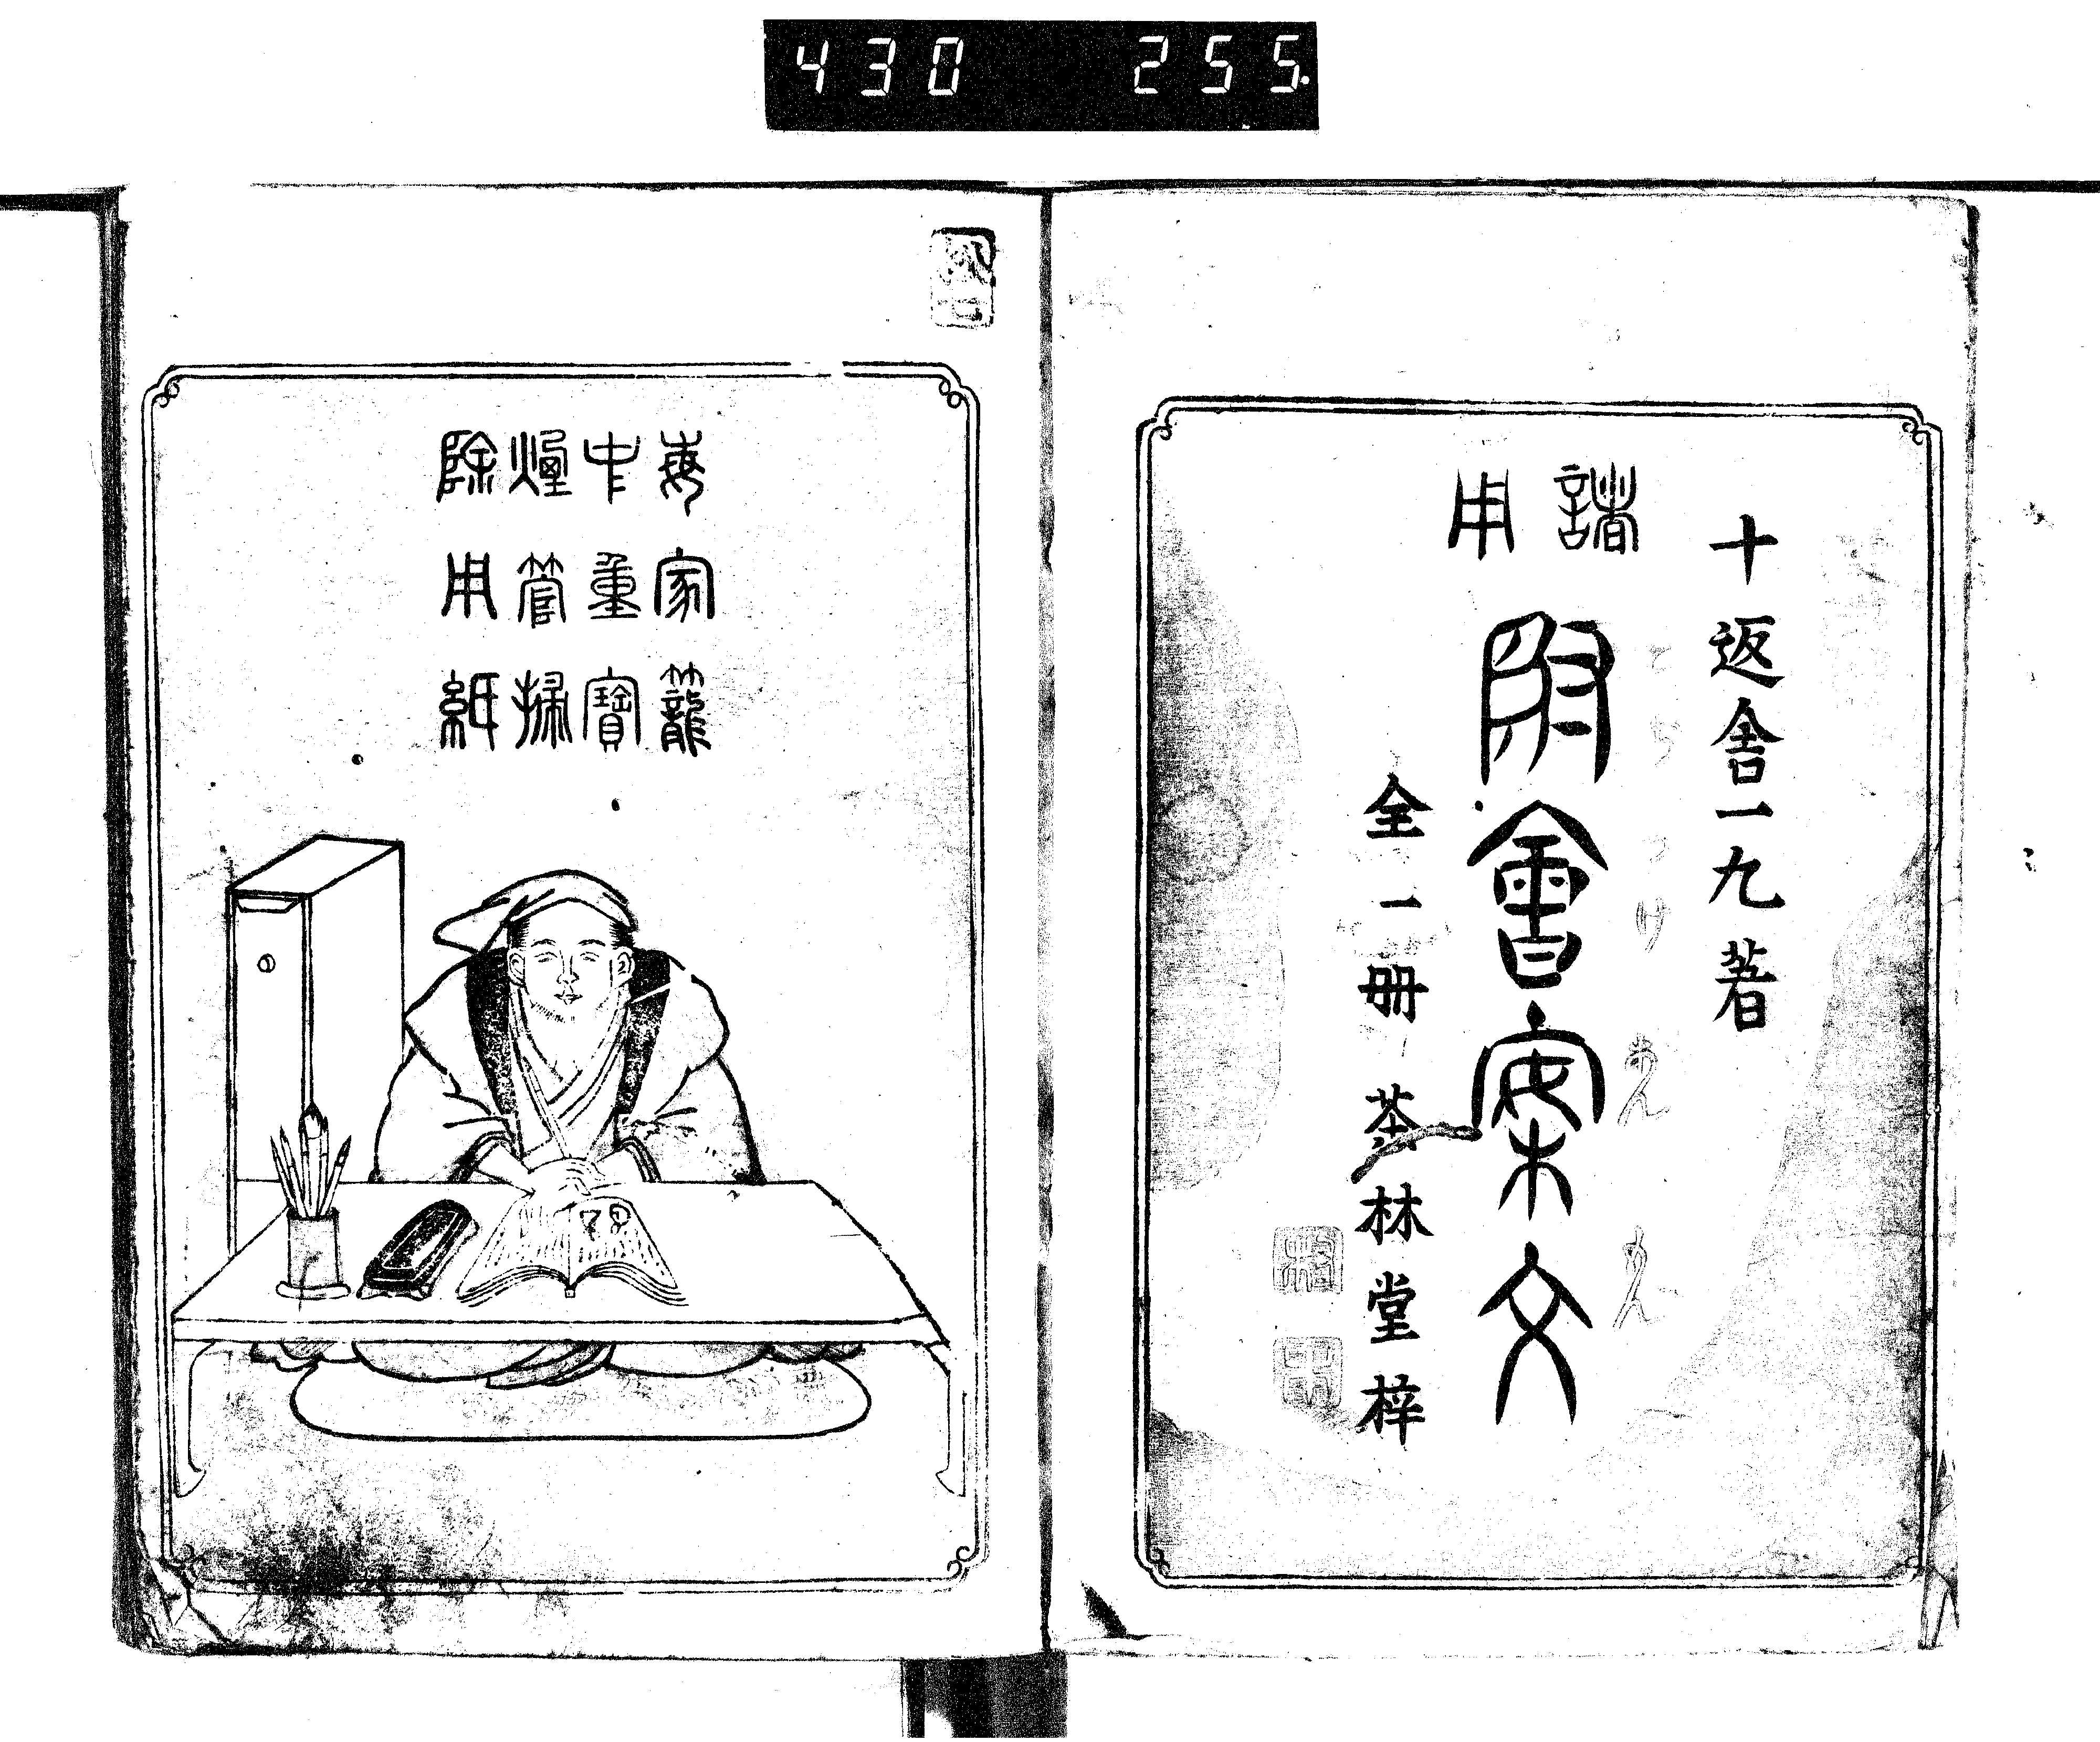 430 255.
十返舎一九著
諸用
附會案文
こぢつけあんもん
全一冊 栄林堂梓
毎家籠
中重寶
煙管掃
除用紙